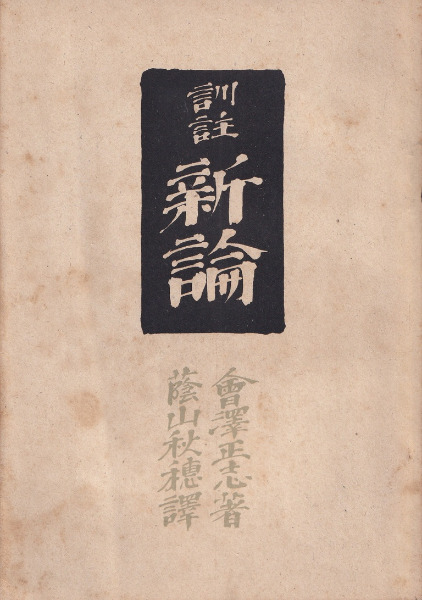 訓註
新論
會澤正志著
蔭山秋穗譯